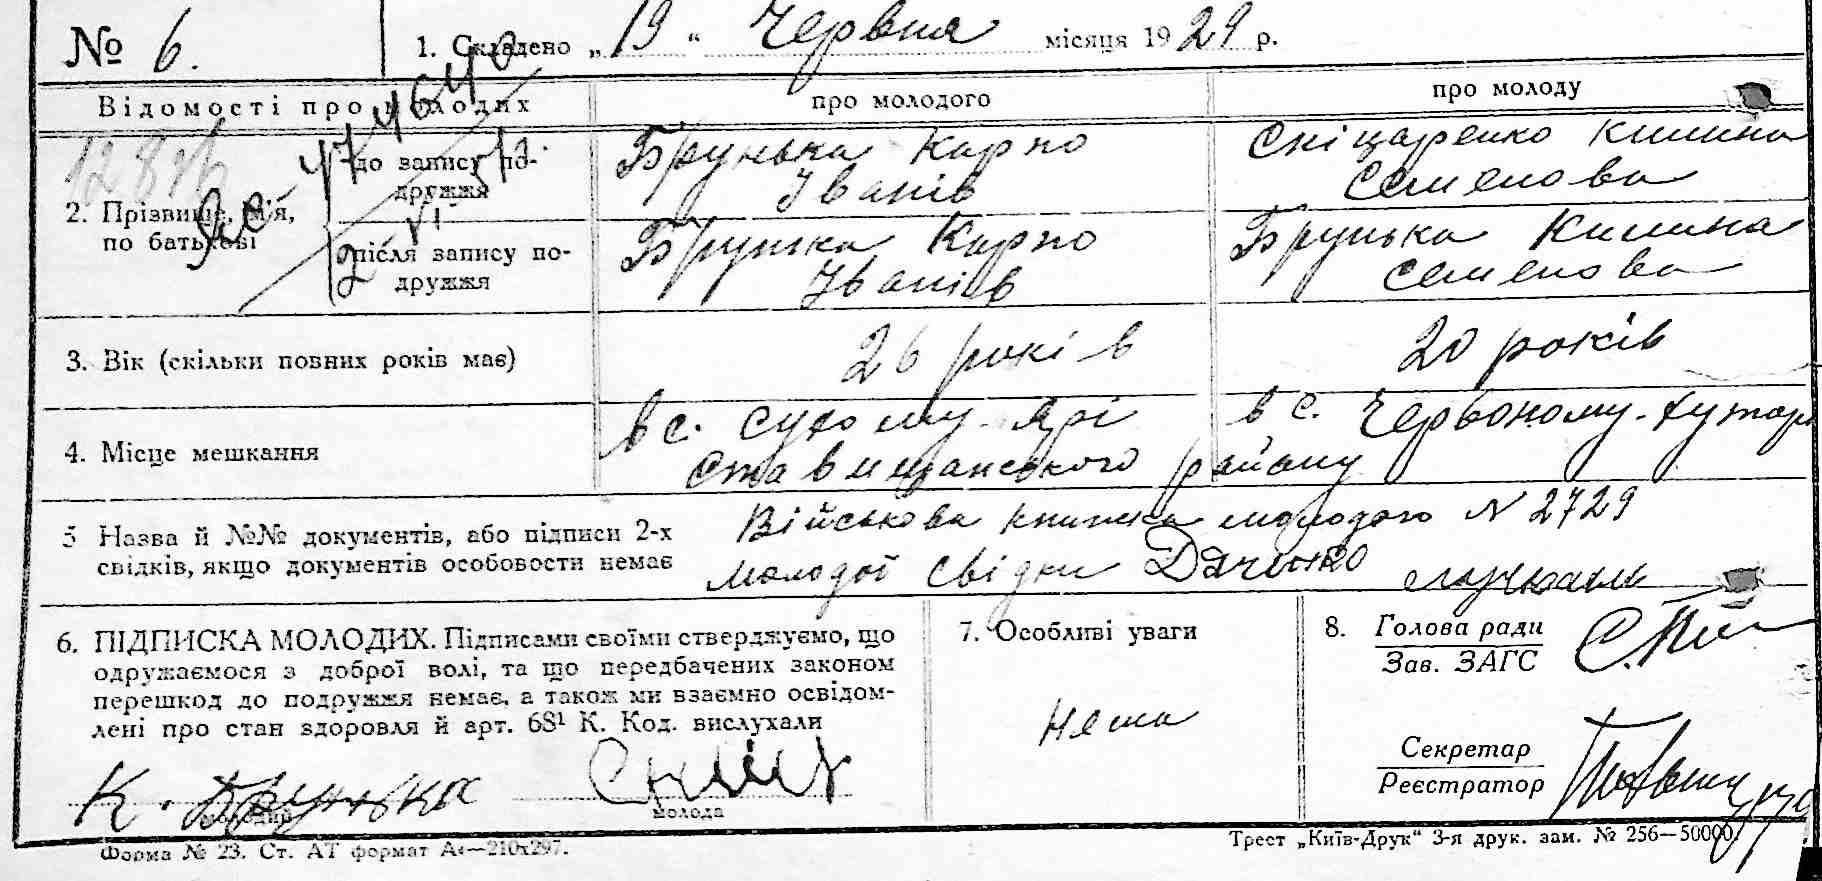 № 6. 1. Складено „ 19 “ Червня місяця 1929 р.
Відомості про молодих про молодого про молоду
2. Прізвище, ім'я, по батькові
до запису подружжя
Брунька Карпо
Іванів
Сніцаренко Килина
Семенова
після запису по-
дружжя
Брунька Карпо
Іванів
Брунька Килина
Семенова
3. Вік (скільки повних років має) 26 років 20 років
4. Місце мешкання
в с. Сухому-Ярі
Ставищанського району
в с. Червоному-Хуторі
5 Назва й №№ документів, або підписи 2-х
свідків, якщо документів особовости немає
Військова книжка молодого N 2729
молодої свідки Дяченко
6. ПІДПИСКА МОЛОДИХ. Підписами своїми стверджуємо, що
одружаємося з доброї волі, та що передбачених законом
перешкод до подружжя немає, а також ми взаємно освідом-
лені про стан здоровля й арт. 68¹ К. Код. вислухали
К. Брунька Сніц
молодий молода
7. Особливі уваги
Нема
8. Голова ради
Зав. ЗАГС
Секретар
Реєстратор
Форма № 23. Ст. АТ формат А4—210x297.
Трест „Київ-Друк“ 3-я друк. зам. № 256—50000.